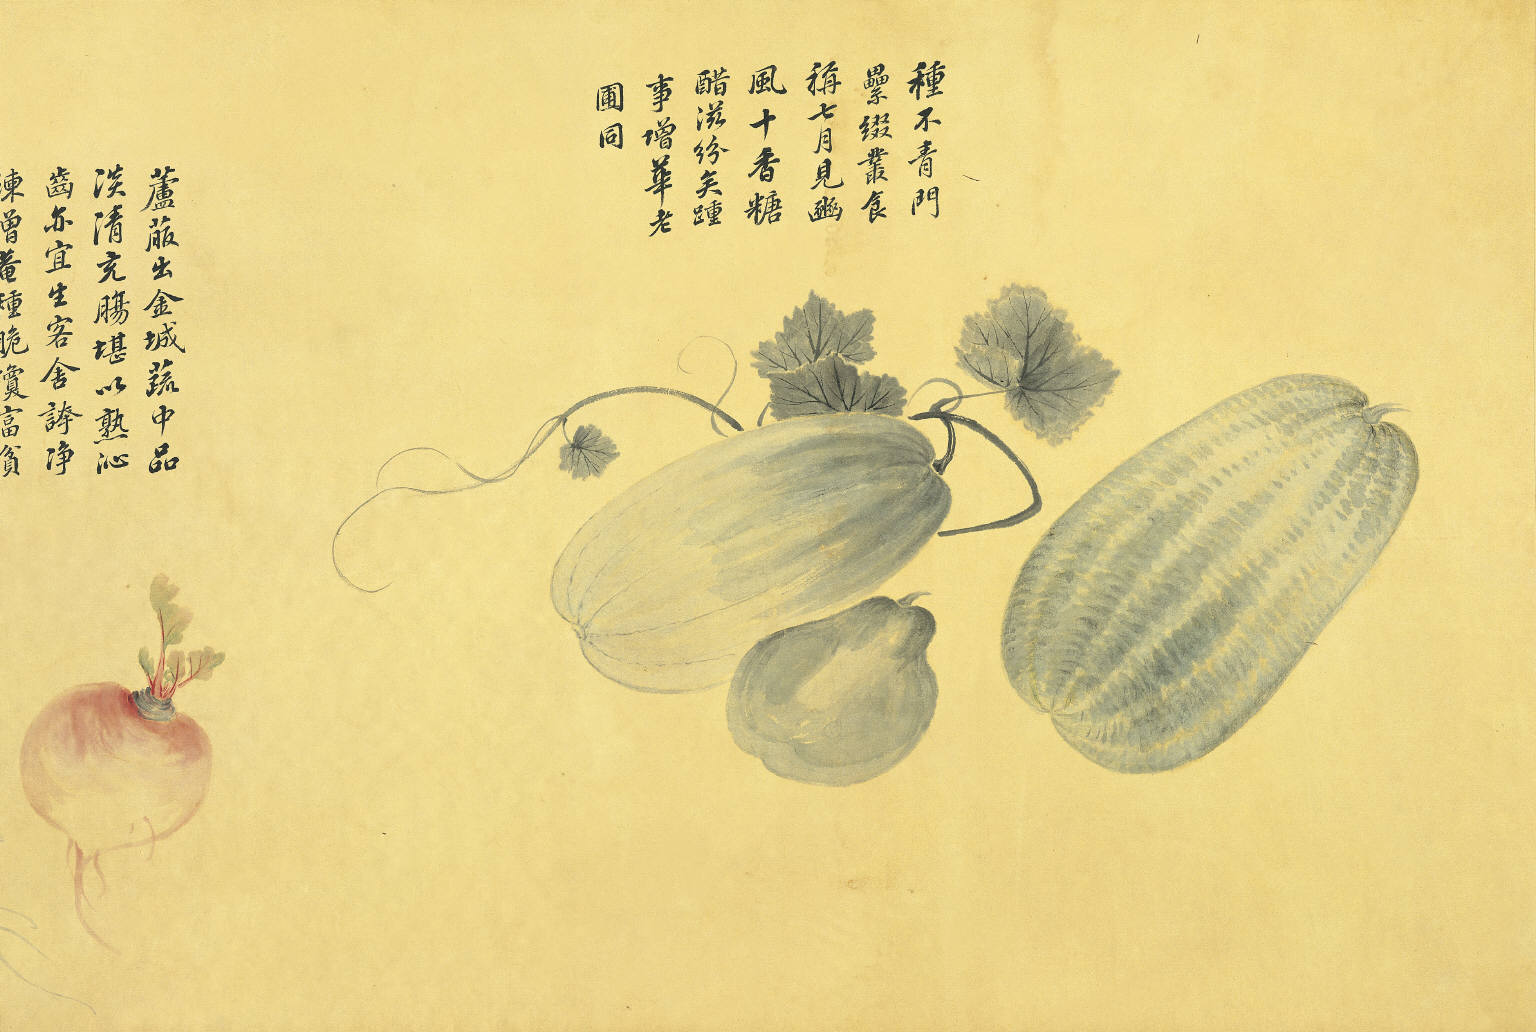 種不青門
纍綴叢食
稱七月見豳
風十香糖
醋滋紛矣踵
事增華老
圃同
蘆菔出金城蔬中品
淡清充腸堪以熟沁
齒亦宜生客舍誇净
陳曽菴種脆瓊富貧